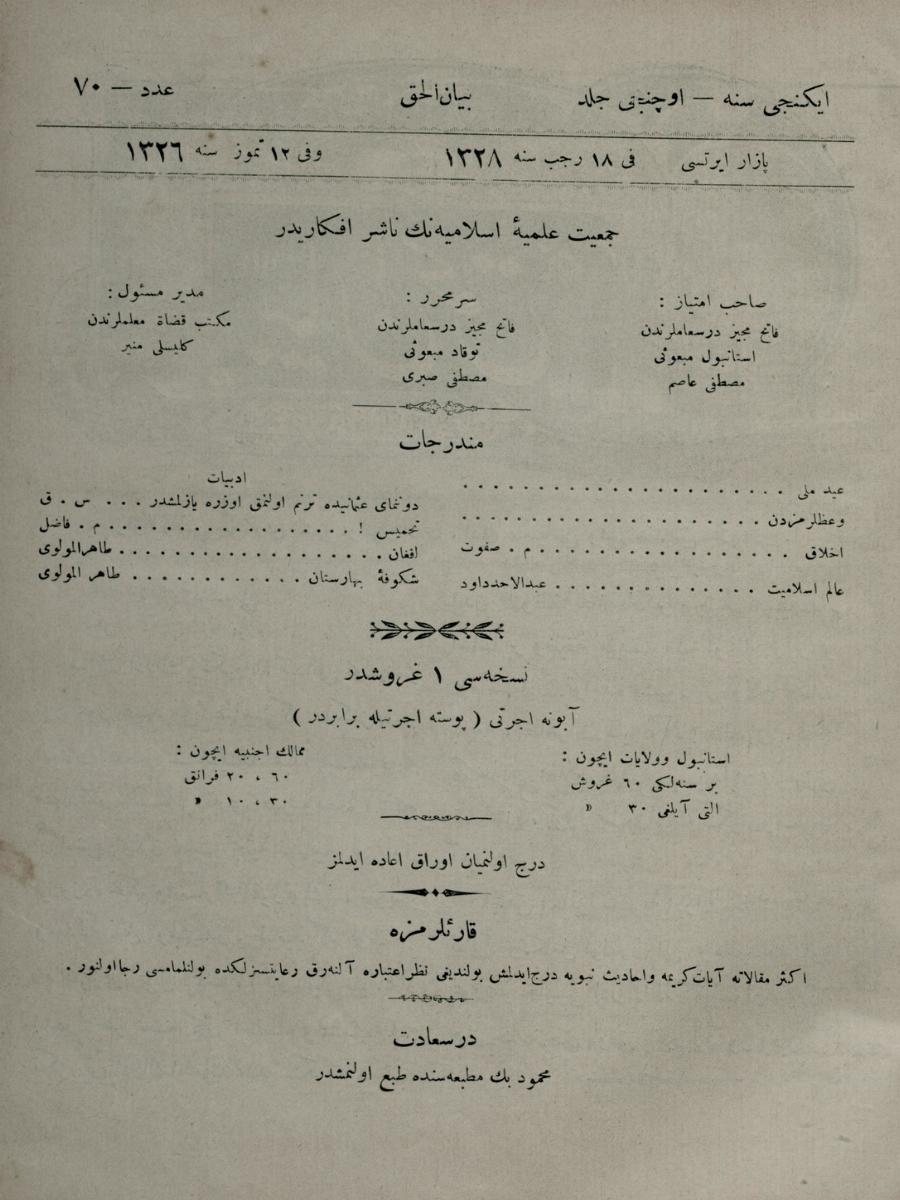 ایكنجی سنه — اوچنجی جلد
بیان‌الحق
عدد — ٧٠
پازار ایرتسی
فی ١٨ رجب سنه ١٣٢٨
وفی ١٢ تموز سنه ١٣٢٦
جمعیت علمیهٔ اسلامیه‌نك ناشر افكاریدر
صاحب امتیاز :
فاتح مجیز درسعاملرندن
استانبول مبعوثی
مصطفی عاصم
سرمحرر :
فاتح مجیز درسعاملرندن
توقاد مبعوثی
مصطفی صبری
مدیر مسئول :
مكتب قضاة معلملرندن
كلیسلی منیر
مندرجات
عید ملی . . . . . . . . . . . . . . . . . . . . .
وعظلرمزدن . . . . . . . . . . . . . . . . . . .
اخلاق . . . . . . . . . . . . . . . . . م . صفوت
عالم اسلامیت . . . . . . . . . . . . . . عبدالاحدداود
ادبیات
دوننمای عثمانیده ترنم اولنمق اوزره یازلمشدر . . . س . ق
تخمیس ! . . . . . . . . . . . . . . . . م . فاضل
افغان . . . . . . . . . . . . . . . . . . طاهرالمولوی
شكوفهٔ بهارستان . . . . . . . . . . . . طاهر المولوی
نسخه‌سی ١ غروشدر
آبونه اجرتی ( پوسته اجرتیله برابردر )
استانبول وولایات ایچون :
بر سنه‌لكی ٦٠ غروش
التی آیلغی ٣٠ »
ممالك اجنبیه ایچون :
٦٠ ، ٢٠ فرانق
٣٠ ، ١٠ »
درج اولنمیان اوراق اعاده ایدلمز
قارئلرمزه
اكثر مقالاته آیات كریمه واحادیث نبویه درج‌ایدلمش بولندیغی نظراعتباره آلنه‌رق رعایتسزلكده بولنلمامسی رجااولنور .
درسعادت
محمود بك مطبعه‌سنده طبع اولنمشدر